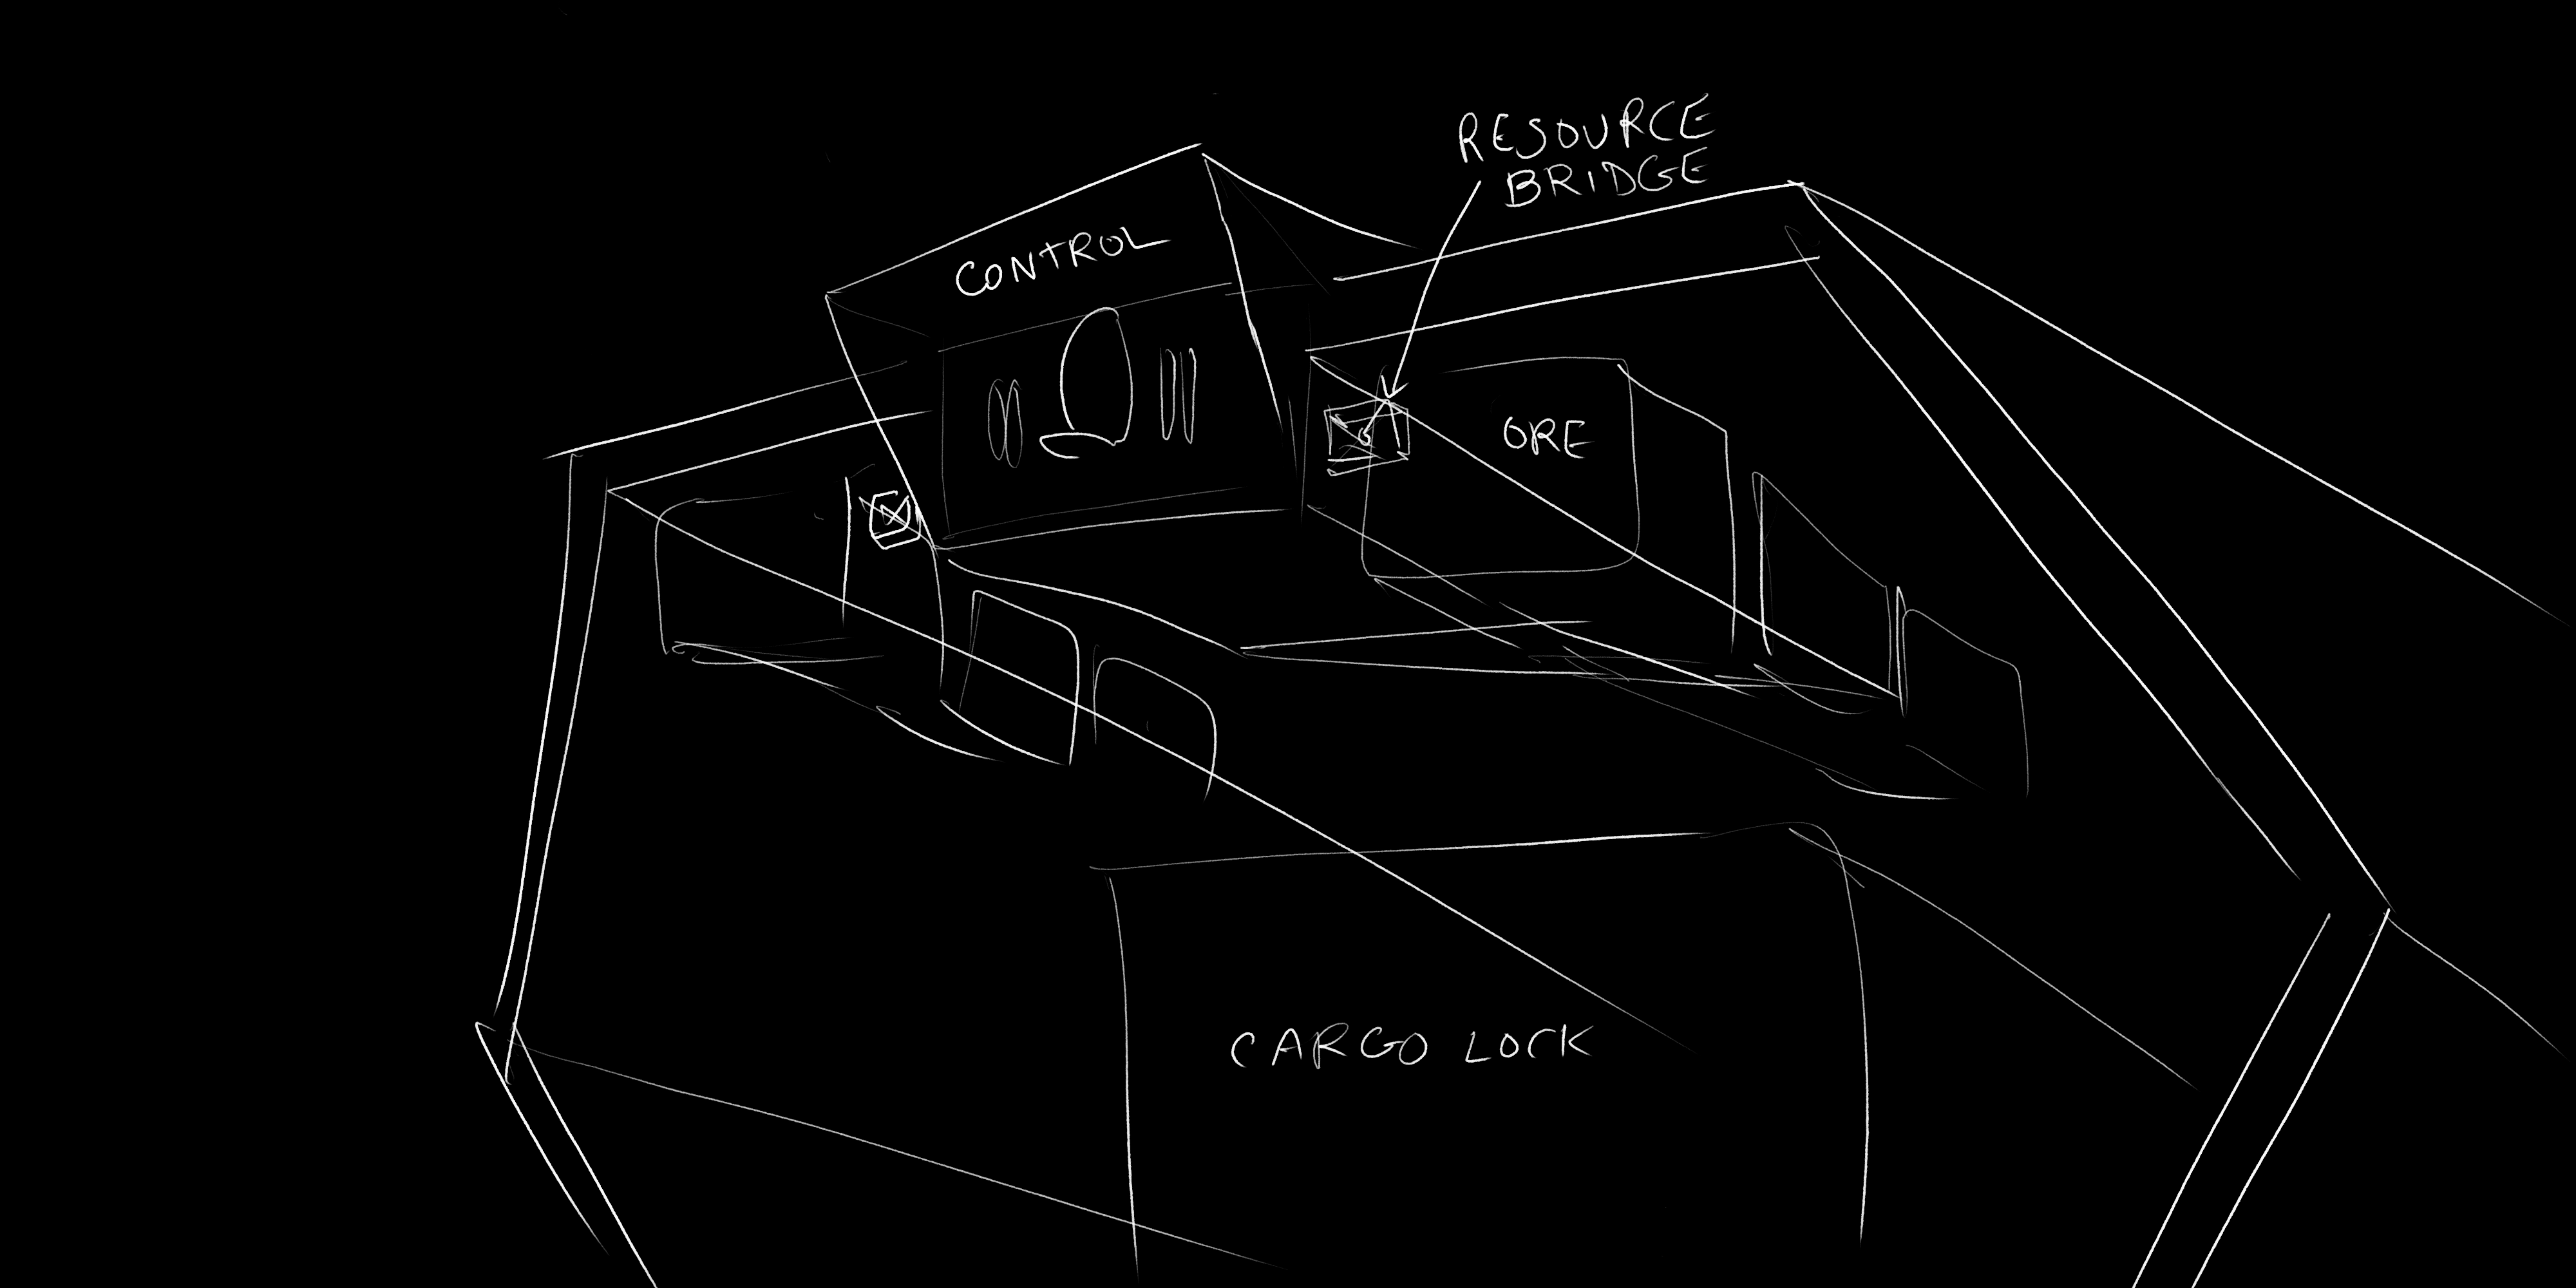 RESOURCE
BRIDGE
CONTROL
ORE
CARGO LOCK